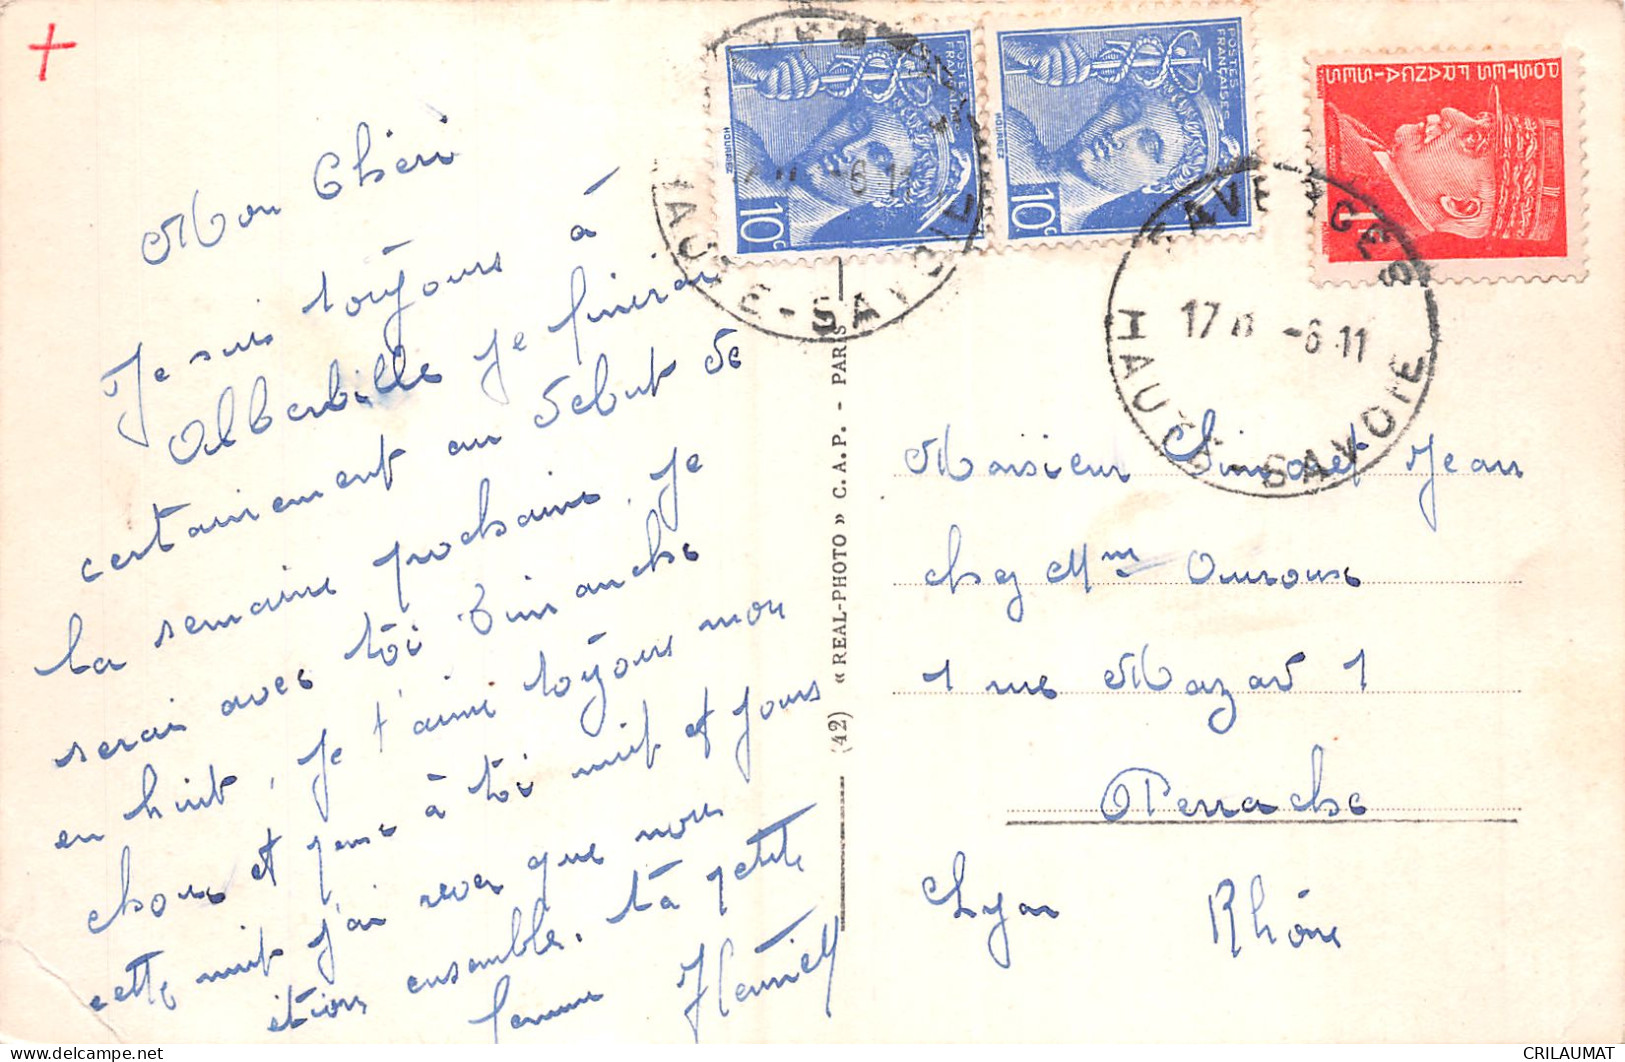 Mon Chéri
Je suis toujours à
Albertville je finirai
certainement au début de
la semaine prochaine, je
serais avec toi dimanche
en huit, je t'aime toujours mon
chous et pense à toi nuit et jours
cette nuit j'ai rever que nous
étions ensemble. ta petite
femme
(42) « REAL-PHOTO » C. A. P. - PARIS
POSTES
FRANÇAISES
HOURRIEZ
10c
POSTES
FRANÇAISES
HOURRIEZ
10c
-6 11
HAUTE-SAVOIE
POSTES FRANÇAISES
FAVERGES
17 -6 11
HAUTE-SAVOIE
Monsieur Jean
chez Mme
1 rue Mazard 1
Perrache
Lyon Rhône
CRILAUMAT